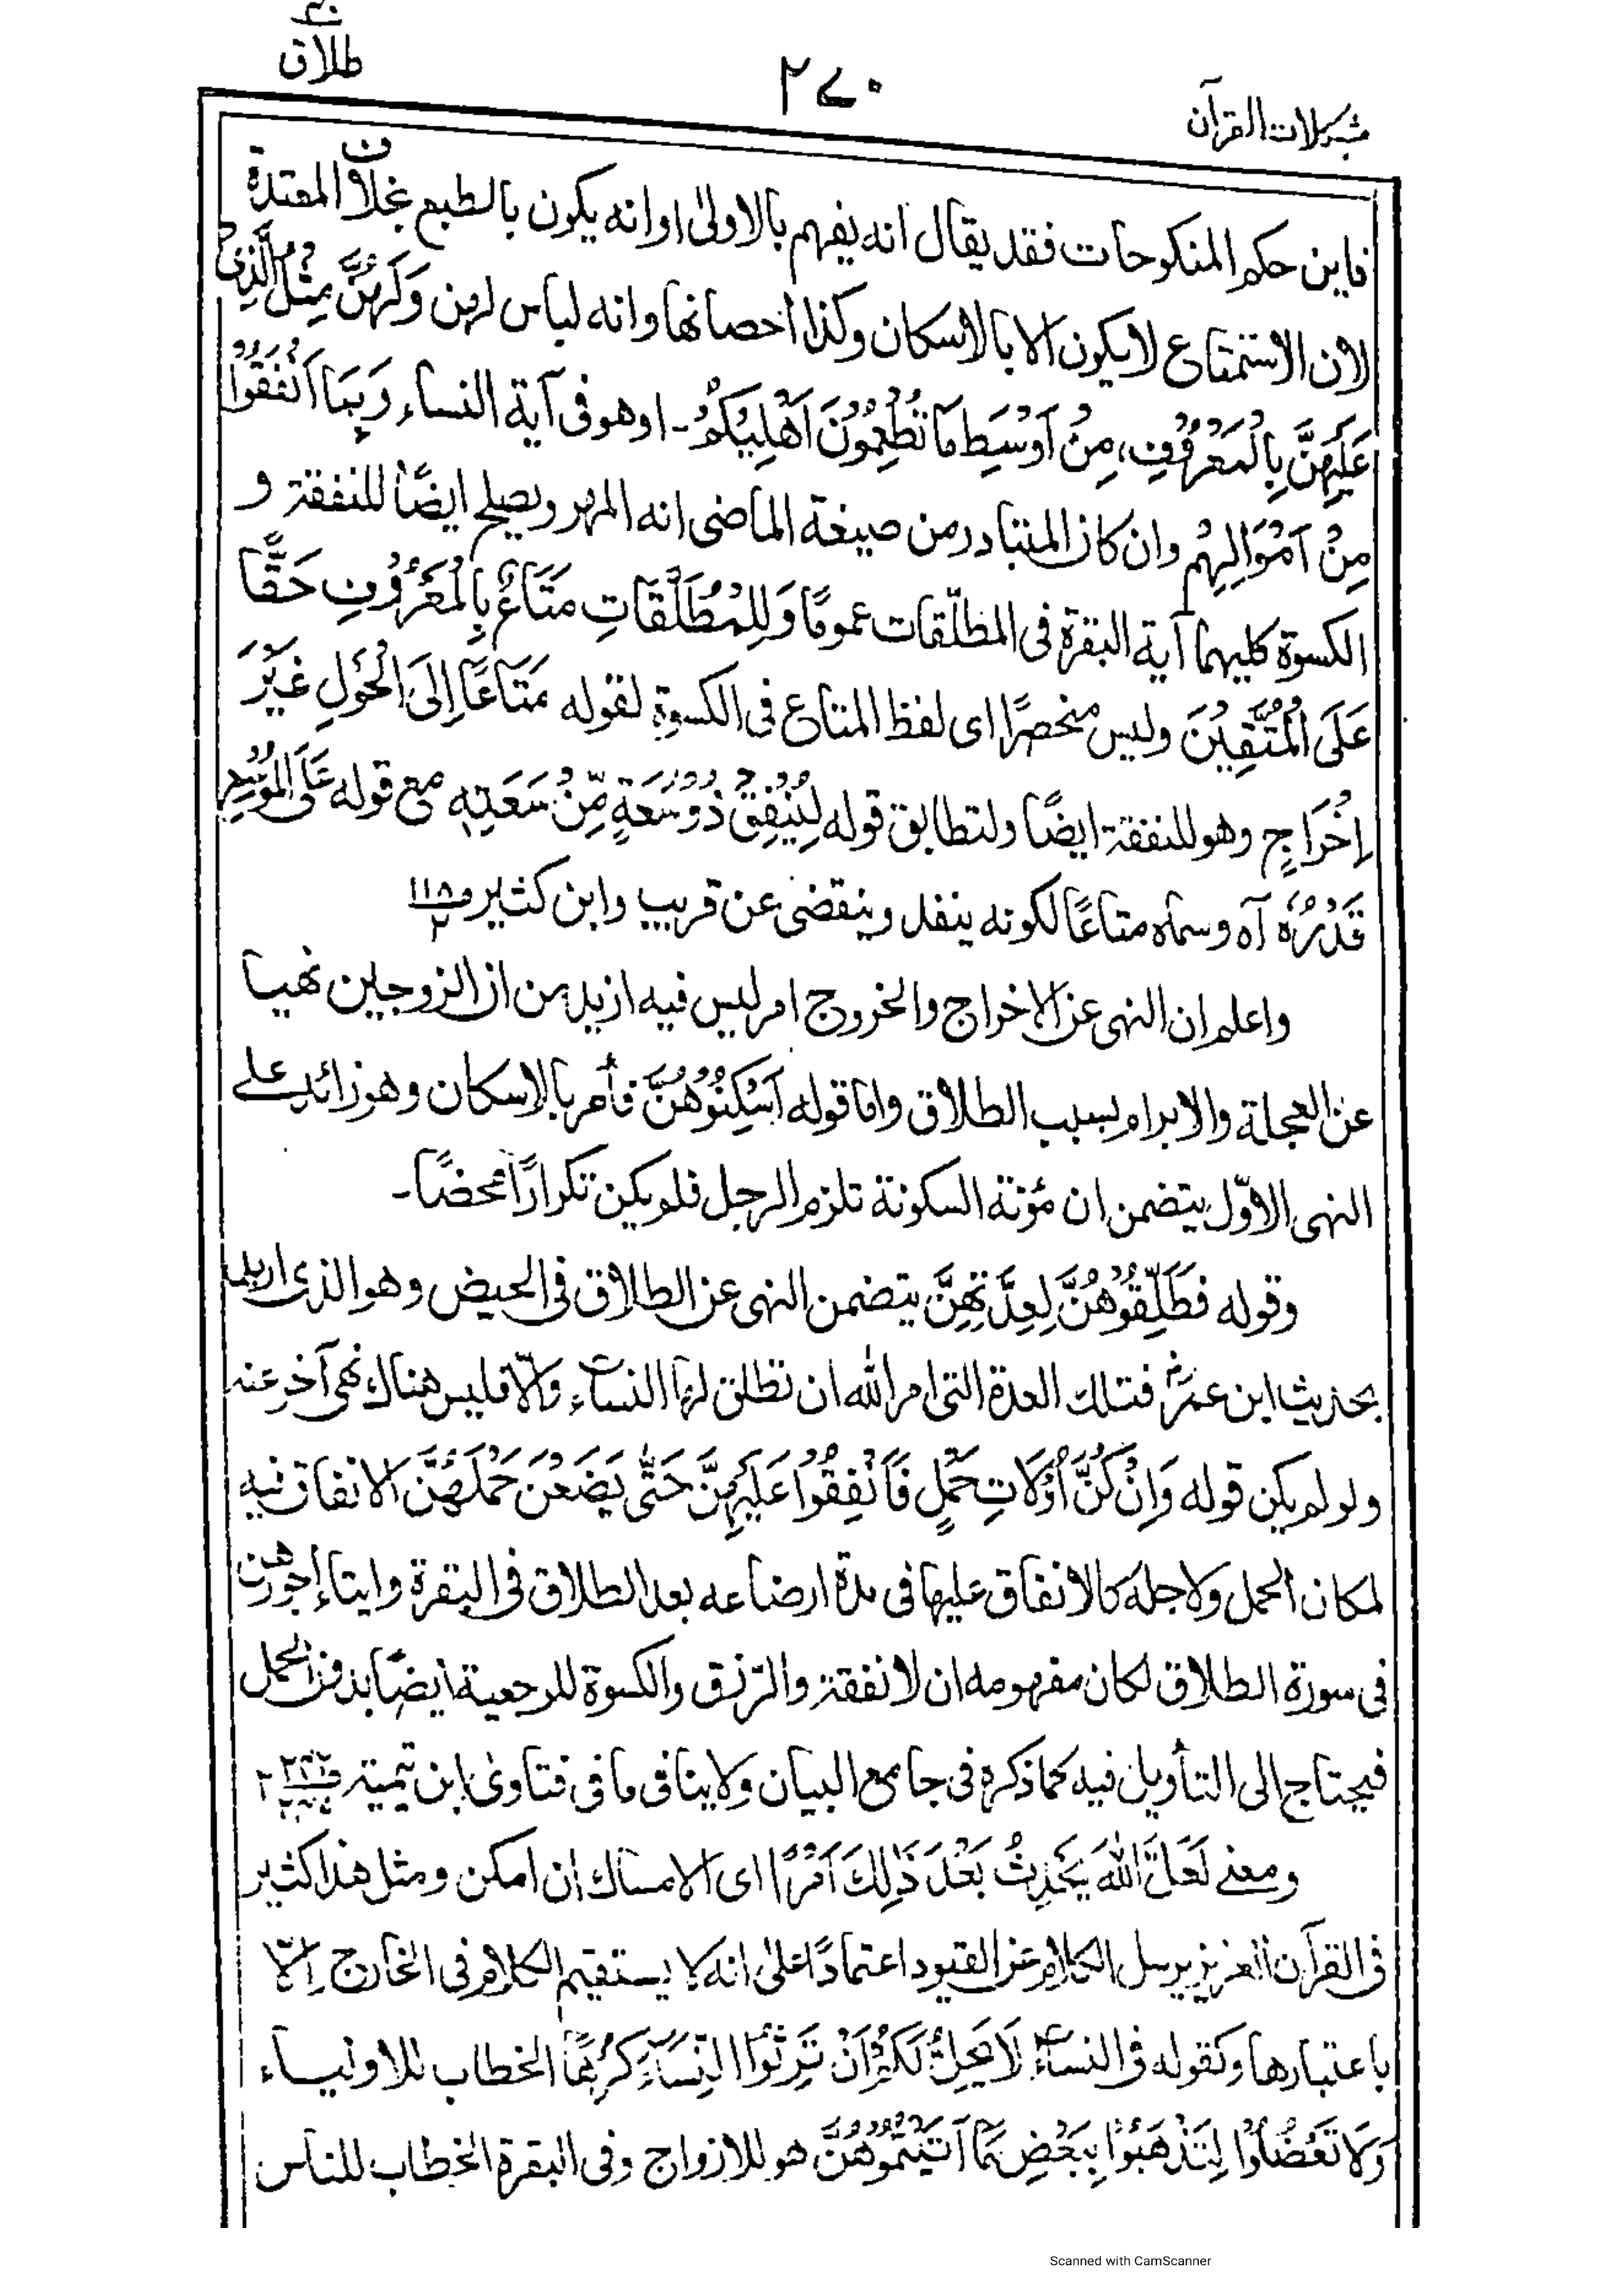 طلاق
٢٧٠
مشکلات القرآن
فاين حكم المنكوحات فقد يقال انه يفهم بالاولىٰ او انه يكون بالطبع بخلاف المعتدة
لان الاستمتاع لا يكون الا بالاسكان وكذا احصانها وانه لباس لهن وَلَهُنَّ مِثْلُ الَّذِیْ
عَلَيْهِنَّ بِالْمَعْرُوْفِ، مِنْ اَوْسَطِ مَا تُطْعِمُوْنَ اَهْلِيْكُمْ ـ او هو فى آية النساء وَبِمَا اَنْفَقُوْا
مِنْ اَمْوَالِهِمْ وان كان المتبادر من صيغة الماضى انه المهر ويصلح ايضًا للنفقة و
الكسوة كليهما آية البقرة فى المطلّقات عمومًا وَلِلْمُطَلَّقَاتِ مَتَاعٌ بِالْمَعْرُوْفِ حَقًّا
عَلَى الْمُتَّقِيْنَ وليس منحصرًا اى لفظ المتاع فى الكسوة لقوله مَتَاعًا اِلَى الْحَوْلِ غَيْرَ
اِخْرَاجٍ وهو للنفقة ايضًا ولتطابق قوله لِيُنْفِقْ ذُوْ سَعَةٍ مِّنْ سَعَتِهٖ مع قوله عَلَى الْمُوْسِعِ
قَدَرُهٗ آه وسماه متاعًا لكونه ينفد وينقضى عن قريب وابن كثير ص ١١٥/٢
واعلم ان النهى عن الاخراج والخروج امر ليس فيه ازيد من ان الزوجين نهيا
عن العجلة والابرام بسبب الطلاق واما قوله اَسْكِنُوْهُنَّ فأمر بالاسكان وهو زائد على
النهى الاوّل يتضمن ان مؤنة السكونة تلزم الرجل فلم يكن تكرارًا محضًا ـ
وقوله فَطَلِّقُوْهُنَّ لِعِدَّتِهِنَّ يتضمن النهى عن الطلاق فى الحيض وهو الذى اريد
بحديث ابن عمرؓ فتلك العدة التى امر الله ان تطلق لها النساء والّا فليس هناك نهى آخر عنه
ولو لم يكن قوله وَاِنْ كُنَّ اُوْلَاتِ حَمْلٍ فَاَنْفِقُوْا عَلَيْهِنَّ حَتّٰى يَضَعْنَ حَمْلَهُنَّ الانفاق فيه
لمكان الحمل ولاجله كالانفاق عليها فى مدة ارضاعه بعد الطلاق فى البقرة وايتاء اجورهن
فى سورة الطلاق لكان مفهومه ان لا نفقة والرّزق والكسوة للرجعية ايضًا بدون الحمل
فيحتاج الى التأويل فيه كما ذكره فى جامع البيان ولا ينافى ما فى فتاوىٰ ابن تيمية
ومعنى لَعَلَّ اللهَ يُحْدِثُ بَعْدَ ذٰلِكَ اَمْرًا اى الامساك ان امكن ومثل هذا كثير
فى القرآن العزيز يرسل الكلام عن القيود اعتمادًا علىٰ انه لا يستقيم الكلام فى الخارج الّا
باعتبارها وكقوله فى النساء لَا يَحِلُّ لَكُمْ اَنْ تَرِثُوا النِّسَآءَ كَرْهًا الخطاب للاولياء
وَلَا تَعْضُلُوْا لِتَذْهَبُوْا بِبَعْضِ مَا آتَيْتُمُوْهُنَّ هو للازواج وفى البقرة الخطاب للناس
Scanned with CamScanner